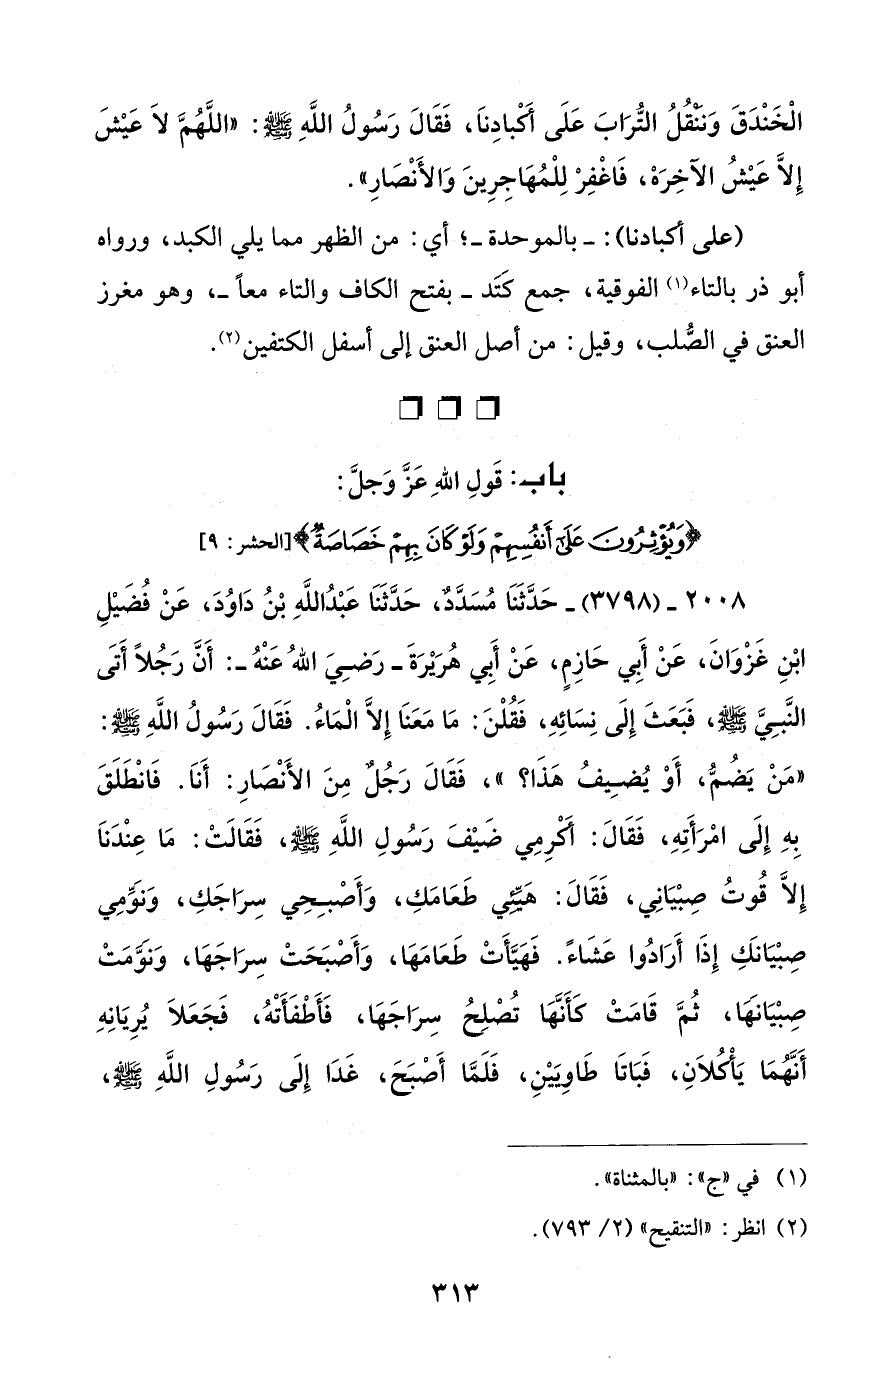 الْخَنْدَقَ وَنَنْقُلُ التُّرَابَ عَلَى أَكْبَادِنَا، فَقَالَ رَسُولُ اللَّهِ ﷺ: «اللَّهُمَّ لاَ عَيْشَ
إِلاَّ عَيْشُ الآخِرَهْ، فَاغْفِرْ لِلْمُهَاجِرِينَ وَالأَنْصَارِ».
(على أكبادنا): ـ بالموحدة ـ؛ أي: من الظهر مما يلي الكبد، ورواه
أبو ذر بالتاء(١) الفوقية، جمع كَتَد ـ بفتح الكاف والتاء معاً ـ، وهو مغرز
العنق في الصُّلب، وقيل: من أصل العنق إلى أسفل الكتفين(٢).
باب: قَولِ اللهِ عَزَّ وَجلَّ:
﴿وَيُؤْثِرُونَ عَلَىٰ أَنفُسِهِمْ وَلَوْ كَانَ بِهِمْ خَصَاصَةٌ﴾ [الحشر: ٩]
٢٠٠٨ ـ (٣٧٩٨) ـ حَدَّثَنَا مُسَدَّدٌ، حَدَّثَنَا عَبْدُاللَّهِ بْنُ دَاوُدَ، عَنْ فُضَيْلِ
ابْنِ غَزْوَانَ، عَنْ أَبِي حَازِمٍ، عَنْ أَبِي هُرَيْرَةَ ـ رَضِيَ اللهُ عَنْهُ ـ: أَنَّ رَجُلاً أَتَى
النَّبِيَّ ﷺ، فَبَعَثَ إِلَى نِسَائِهِ، فَقُلْنَ: مَا مَعَنَا إِلاَّ الْمَاءُ. فَقَالَ رَسُولُ اللَّهِ ﷺ:
«مَنْ يَضُمُّ، أَوْ يُضِيفُ هَذَا؟ »، فَقَالَ رَجُلٌ مِنَ الأَنْصَارِ: أَنَا. فَانْطَلَقَ
بِهِ إِلَى امْرَأَتِهِ، فَقَالَ: أَكْرِمِي ضَيْفَ رَسُولِ اللَّهِ ﷺ، فَقَالَتْ: مَا عِنْدَنَا
إِلاَّ قُوتُ صِبْيَانِي، فَقَالَ: هَيِّئِي طَعَامَكِ، وَأَصْبِحِي سِرَاجَكِ، وَنَوِّمِي
صِبْيَانَكِ إِذَا أَرَادُوا عَشَاءً. فَهَيَّأَتْ طَعَامَهَا، وَأَصْبَحَتْ سِرَاجَهَا، وَنَوَّمَتْ
صِبْيَانَهَا، ثُمَّ قَامَتْ كَأَنَّهَا تُصْلِحُ سِرَاجَهَا، فَأَطْفَأَتْهُ، فَجَعَلاَ يُرِيَانِهِ
أَنَّهُمَا يَأْكُلاَنِ، فَبَاتَا طَاوِيَيْنِ، فَلَمَّا أَصْبَحَ، غَدَا إِلَى رَسُولِ اللَّهِ ﷺ،
(١) في «ج»: «بالمثناة».
(٢) انظر: «التنقيح» (٢/ ٧٩٣).
٣١٣